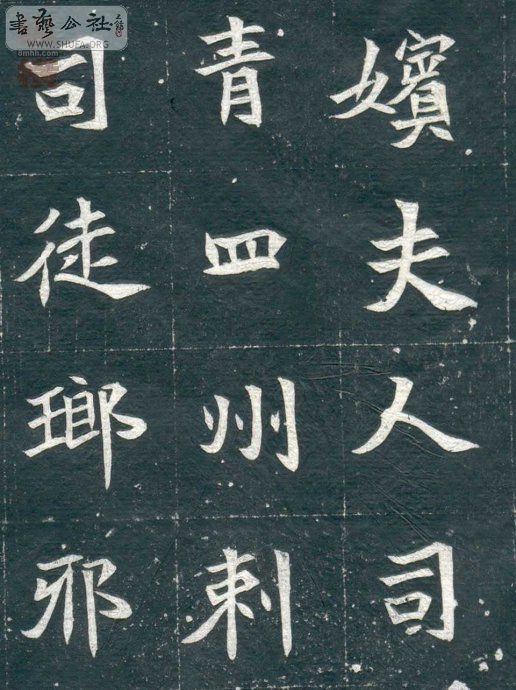 嬪夫人司
青四州刺
司徒瑯邪
書藝公社
WWW.SHUFA.ORG
omhh.com